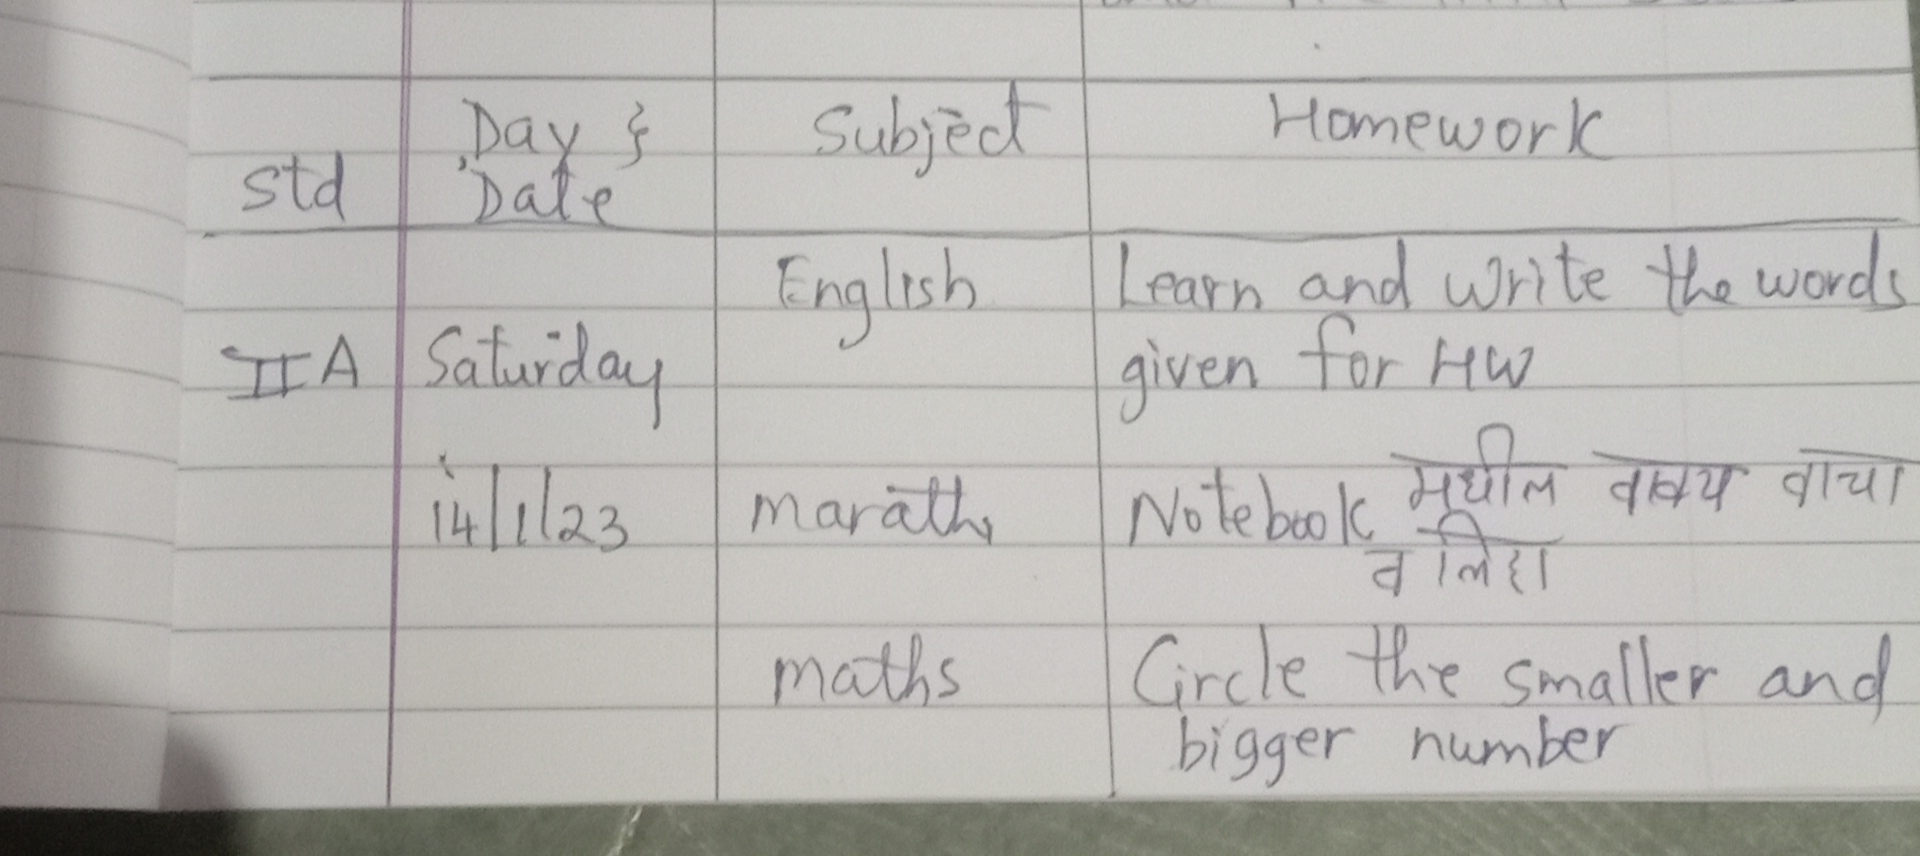 Std Day & Date Subject Homework
English Learn and write the words
II A Saturday given for HW
14/1/23 marathi Notebook मधील वाक्य वाचा
व लिहा
maths Circle the smaller and
bigger number